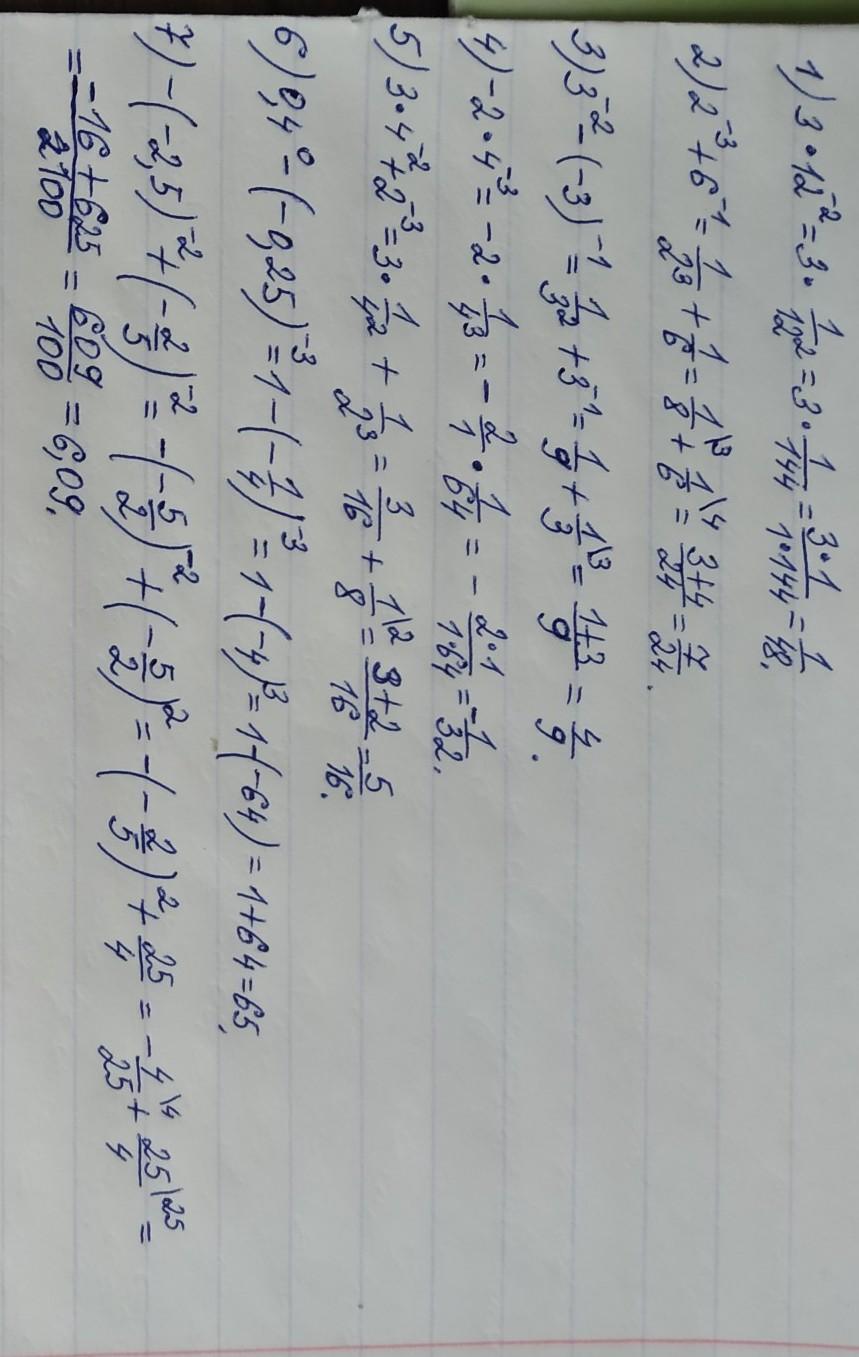 1) 3 • 12⁻² = 3 • 1/12² = 3 • 1/144 = 3•1/1•144 = 1/48.
2) 2⁻³ + 6⁻¹ = 1/2³ + 1/6 = 1\3/8 + 1\4/6 = 3+4/24 = 7/24.
3) 3⁻² - (-3)⁻¹ = 1/3² + 3⁻¹ = 1/9 + 1\3/3 = 1+3/9 = 4/9.
4) -2 • 4⁻³ = -2 • 1/4³ = - 2/1 • 1/64 = - 2•1/1•64 = -1/32.
5) 3 • 4⁻² + 2⁻³ = 3 • 1/4² + 1/2³ = 3/16 + 1\2/8 = 3+2/16 = 5/16.
6) 0,4⁰ - (-0,25)⁻³ = 1 - (-1/4)⁻³ = 1 - (-4)³ = 1 - (-64) = 1 + 64 = 65.
7) -(-2,5)⁻² + (-2/5)⁻² = -(-5/2)⁻² + (-5/2)² = -(-2/5)² + 25/4 = - 4\4/25 + 25\25/4 =
= -16 + 625/100 = 609/100 = 6,09.